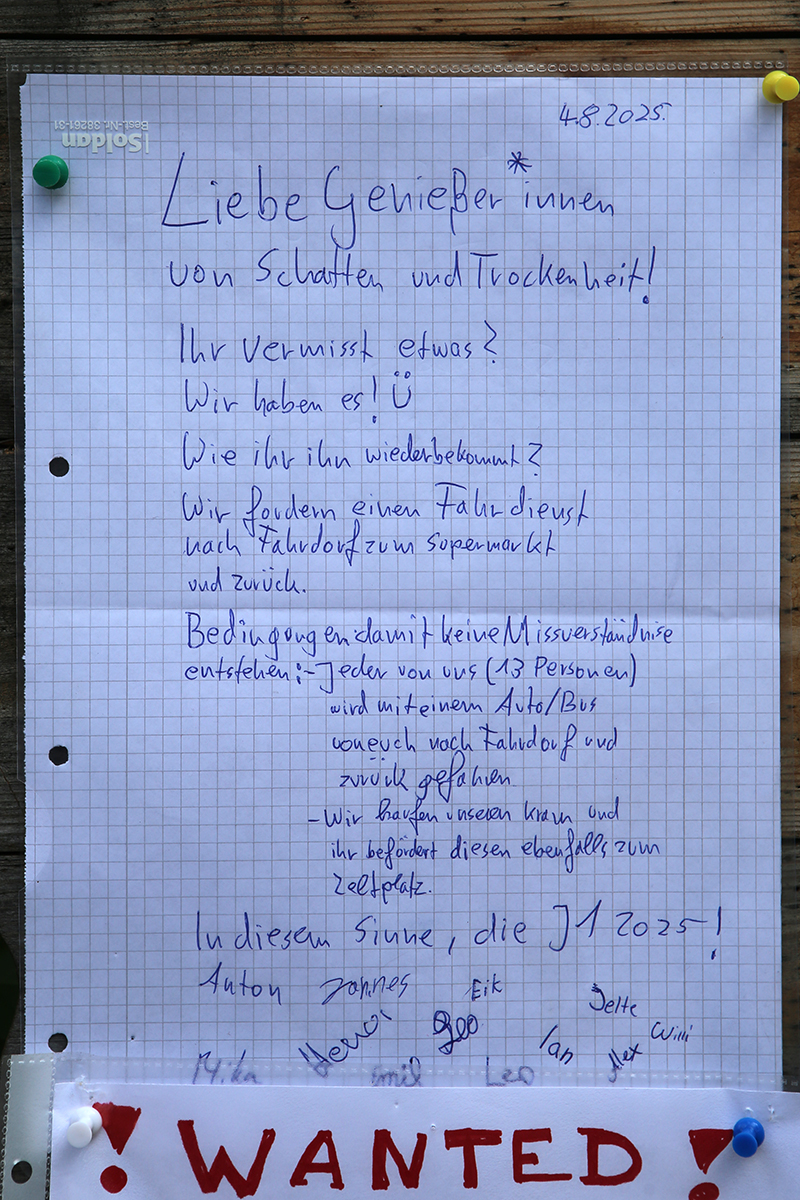 4.8.2025.
|Soldan
Best.-Nr. 38261-31
Liebe Genießer*innen
von Schatten und Trockenheit!
Ihr vermisst etwas?
Wir haben es! Ü
Wie ihr ihn wiederbekommt?
Wir fordern einen Fahrdienst
nach Fahrdorf zum Supermarkt
und zurück.
Bedingungen damit keine Missverständnise
entstehen: - Jeder von uns (13 Personen)
wird mit einem Auto/Bus
von euch nach Fahrdorf und
zurück gefahren
- Wir kaufen unseren kram und
ihr befördert diesen ebenfalls zum
Zeltplatz.
In diesem Sinne, die J1 2025!
Anton Jannes Eik Jelte
Geo Ian Alex Willi
Mika Emil Leo
! WANTED !